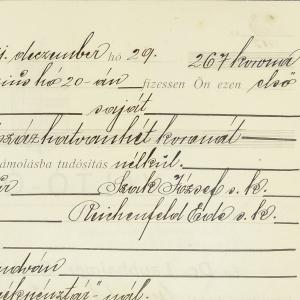 deczember hó 29. 267 korona
hó 20-án fizessen Ön ezen első
saját
százhatvanhét koronát
számolásba tudósítás nélkül.
Szak József s. k.
Reichenfeld Ede s. k.
pénztár" nál.